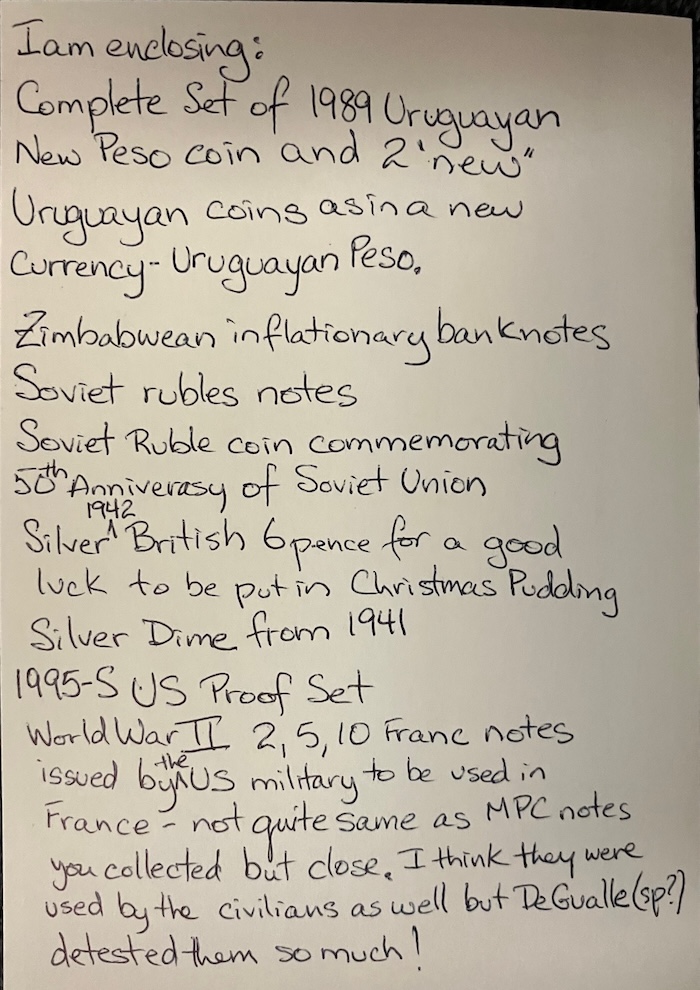 I am enclosing:
Complete Set of 1989 Uruguayan
New Peso coin and 2 'new"
Uruguayan coins as in a new
Currency - Uruguayan Peso.
Zimbabwean inflationary banknotes
Soviet rubles notes
Soviet Ruble coin commemorating
50th Anniverasy of Soviet Union
Silver ^ 1942 British 6 pence for a good
luck to be put in Christmas Pudding
Silver Dime from 1941
1995-S US Proof Set
World War II 2, 5, 10 Franc notes
issued by ^ the US military to be used in
France - not quite same as MPC notes
you collected but close. I think they were
used by the civilians as well but DeGualle (sp?)
detested them so much!